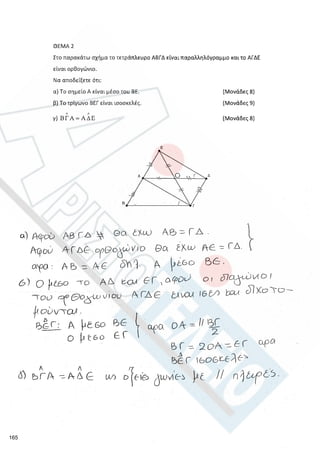 ΘΕΜΑ 2
Στο παρακάτω σχήμα το τετράπλευρο ΑΒΓΔ είναι παραλληλόγραμμο και το ΑΓΔΕ
είναι ορθογώνιο.
Να αποδείξετε ότι:
α) Το σημείο Α είναι μέσο του ΒΕ. (Μονάδες 8)
β) Το τρίγωνο ΒΕΓ είναι ισοσκελές. (Μονάδες 9)
γ) ΒΓ̂Α = ΑΔ̂Ε (Μονάδες 8)
Ε
Α Ο Δ
Β Γ
α) Αφού ΑΒΓΔ # θα έχω ΑΒ = ΓΔ.
Αφού ΑΓΔΕ ορθογώνιο θα έχω ΑΕ = ΓΔ.
αρα: ΑΒ = ΑΕ δηλ. Α μέσο ΒΕ.
β) Ο μεσο το ΑΔ και ΕΓ, αφου οι διαγώνιοι
του ορθογωνίου ΑΓΔΕ ειναι ισες και διχοτο-
μούνται.
ΒΕΓ: Α μεσο ΒΕ } αρα ΟΑ = // ΒΓ/2
Ο μεσο ΕΓ
ΒΓ = 2ΟΑ = ΕΓ αρα
ΒΕΓ ισοσκελες
δ) ΒΓ̂Α = ΑΔ̂Ε ως οξείες γωνίες με // πλευρές.
ΑΡΙΣΤΟΤΕΛΕΙΟ
165